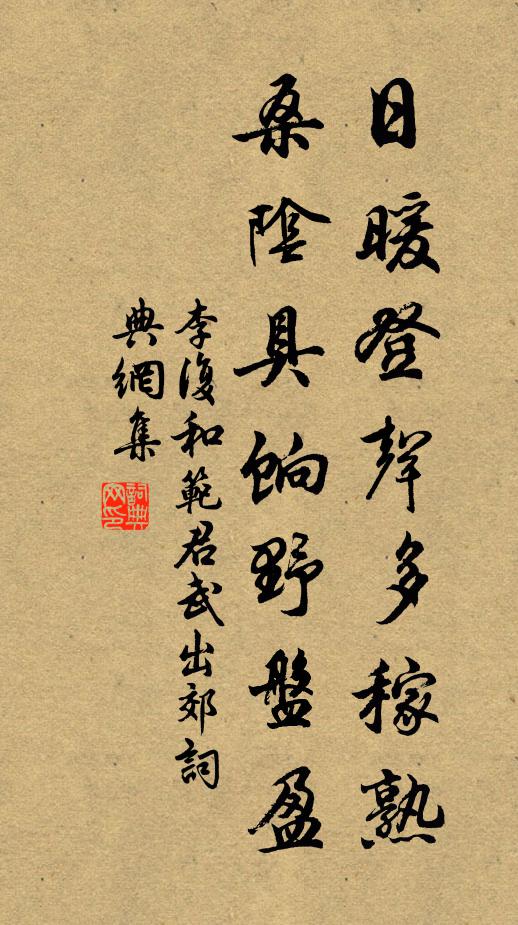 日暖登聲多稼熟
桑陰具餉野盤盈
李復和範君武出郊詞
典網集
詞典
网印